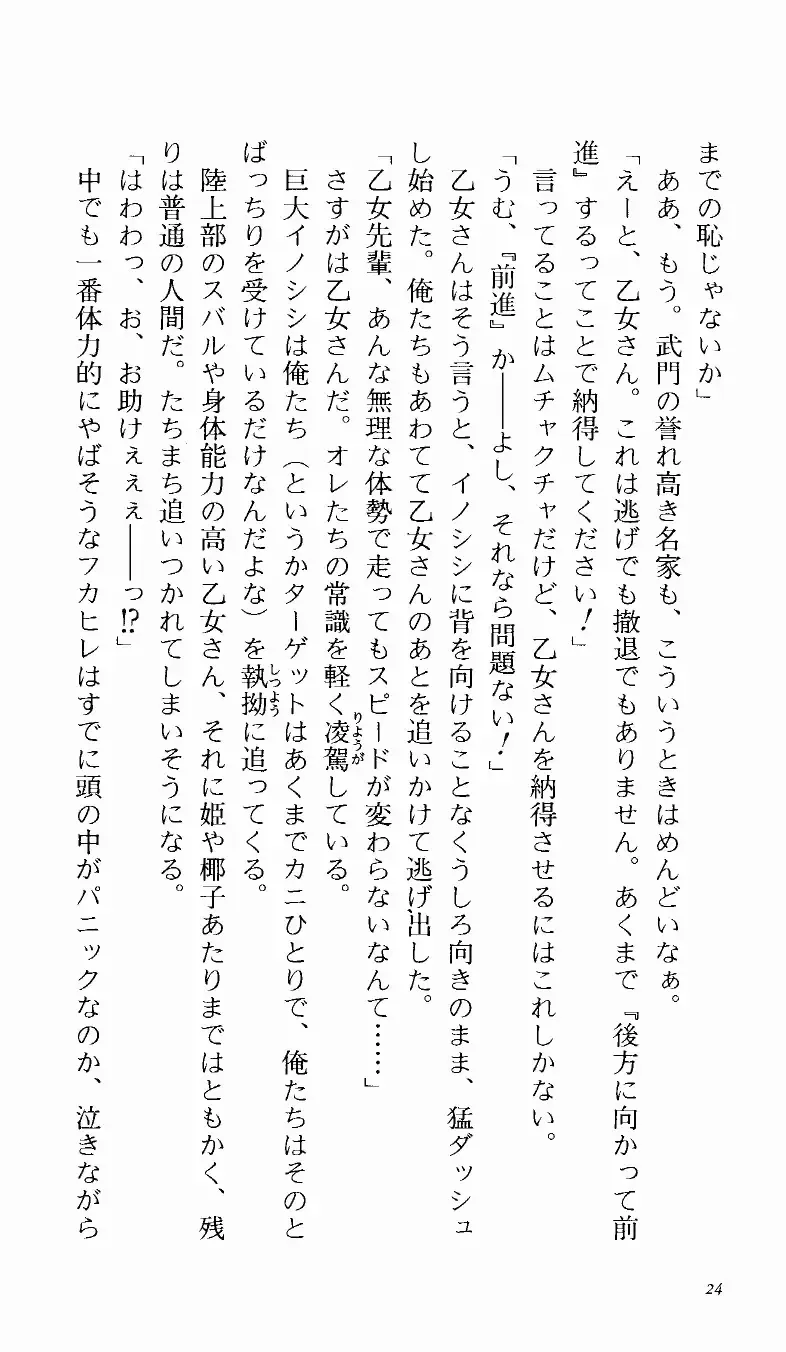 までの恥じゃないか」
　ああ、もう。武門の誉れ高き名家も、こういうときはめんどいなぁ。
「えーと、乙女さん。これは逃げでも撤退でもありません。あくまで『後方に向かって前
進』するってことで納得してください！」
　言ってることはムチャクチャだけど、乙女さんを納得させるにはこれしかない。
「うむ、『前進』か――よし、それなら問題ない！」
　乙女さんはそう言うと、イノシシに背を向けることなくうしろ向きのまま、猛ダッシュ
し始めた。俺たちもあわてて乙女さんのあとを追いかけて逃げ出した。
「乙女先輩、あんな無理な体勢で走ってもスピードが変わらないなんて……」
　さすがは乙女さんだ。オレたちの常識を軽く凌駕りょうがしている。
　巨大イノシシは俺たち（というかターゲットはあくまでカニひとりで、俺たちはそのと
ばっちりを受けているだけなんだよな）を執拗しつように追ってくる。
　陸上部のスバルや身体能力の高い乙女さん、それに姫や椰子あたりまではともかく、残
りは普通の人間だ。たちまち追いつかれてしまいそうになる。
「はわわっ、お、お助けぇぇぇ――っ!?」
　中でも一番体力的にやばそうなフカヒレはすでに頭の中がパニックなのか、泣きながら
24